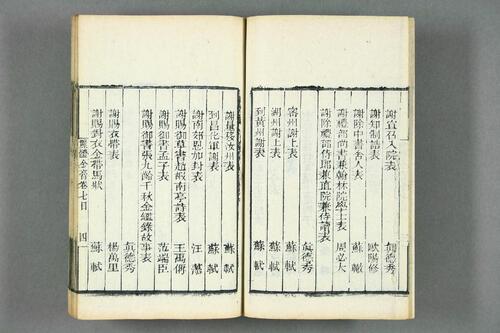 謝宣召入院表 真德秀
謝知制誥表 歐陽修
謝除中書舍人表 蘇轍
謝禮部尚書兼翰林院學士表 周必大
謝除禮部侍郎兼直院兼侍讀表 真德秀
密州謝上表 蘇軾
湖州謝上表 蘇軾
到黃州謝表 蘇軾
謝量移汝州表 蘇軾
到昌化軍謝表 蘇軾
謝南郊恩加封表 汪藻
謝賜御草書趙嘏南亭詩表 王禹偁
謝賜御書孟子表 范端臣
謝賜御書張九齡千秋金鑑錄故事表 真德秀
謝賜衣帶表 楊萬里
謝賜對衣金帶馬狀 蘇軾
卷七目 四